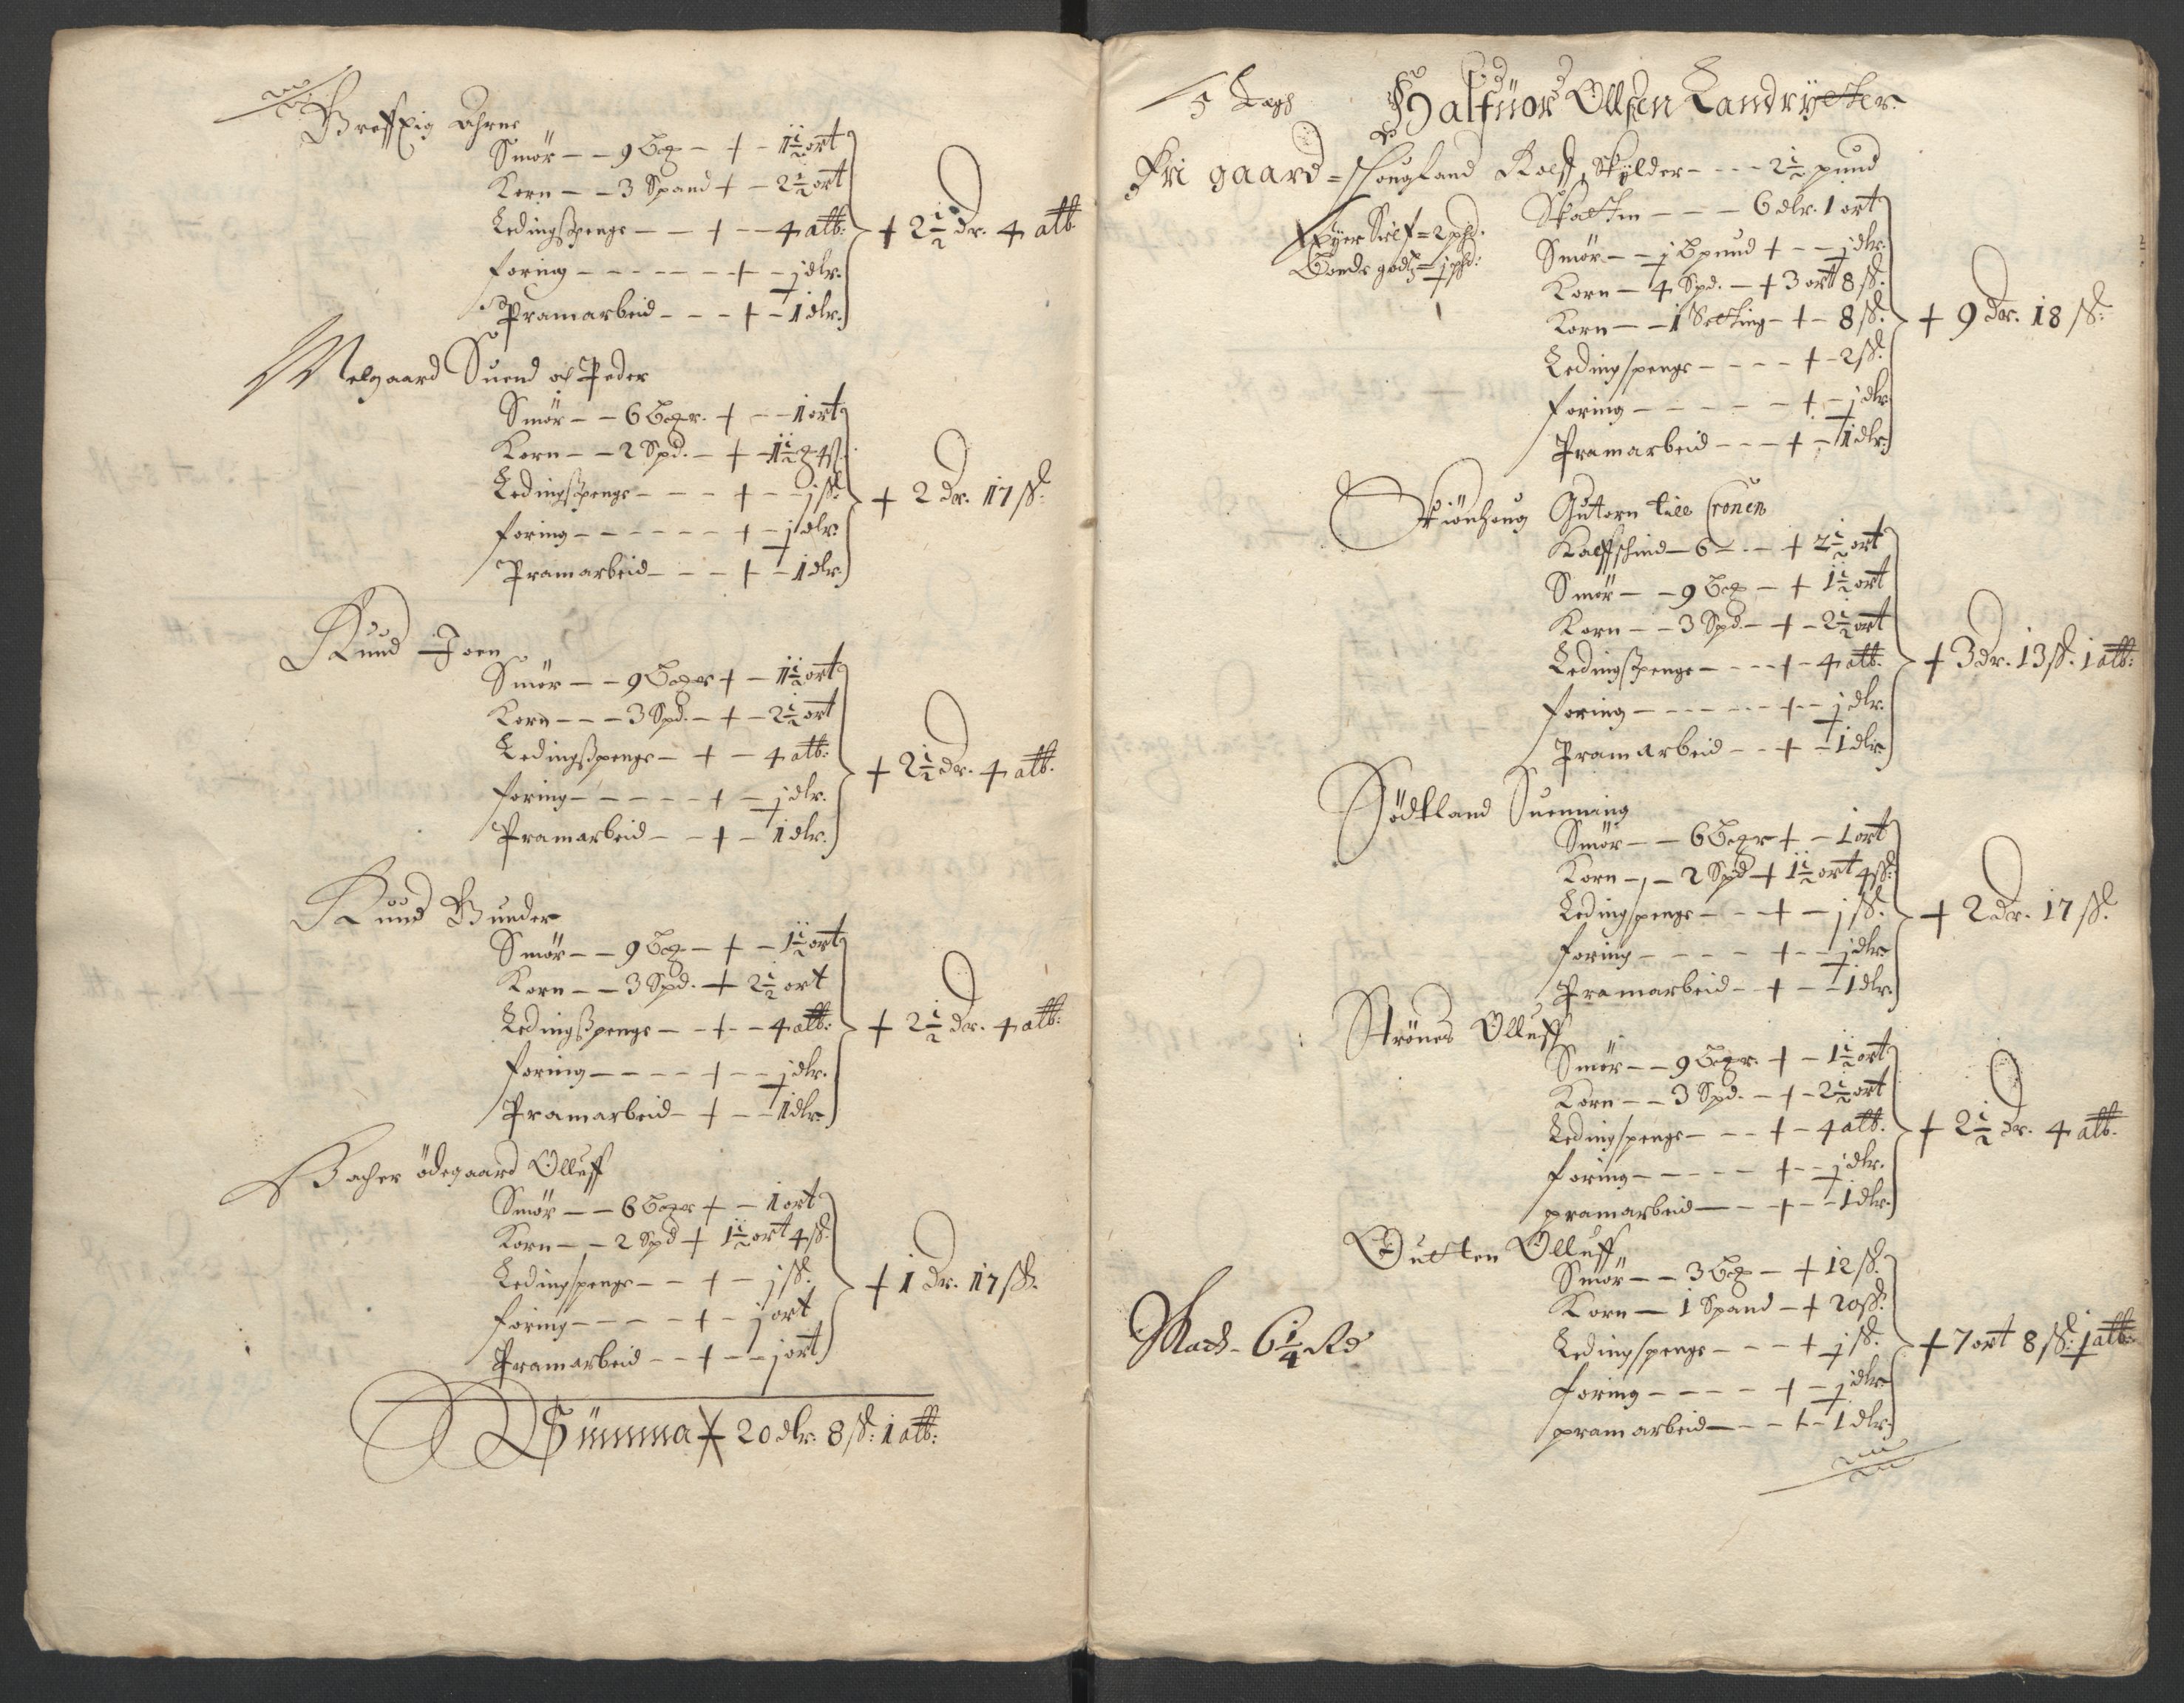 Breffig Ahrne
Smør – – 9 Bog – + – 1½ ort
Korn – – 3 Spand + – 2½ ort
Ledingspenge – – + – – 4 alb:
foring – – – – – – + – j dlr.
Pramarbeid – – – + – 1 dlr.
+ 2½ dr. 4 alb
Melgaard Suend och Peder
Smør – – 6 Bogr. + – – 1 ort
Korn – – 2 Spd. – + – 1½ 4 ß.
Ledingspenge – – – + – – j ß.
foring – – – – – – + – j dlr.
Pramarbeid – – – + – 1 dlr.
+ 2 dr. 17 ß.
Rund Joen
Smør – – 9 Boger + – 1½ ort
Korn – – – 3 Spd. – + – 2½ ort
Ledingspenge – + – 4 alb:
foring – – – – – + – j dlr.
Pramarbeid – – + – 1 dlr.
+ 2½ dr. 4 alb.
Rund Gunder
Smør – – 9 Bog – + – 1½ ort
Korn – – 3 Spd. – + 2½ ort
Ledingspenge – – + – – 4 alb:
foring – – – – + – – j dlr.
Pramarbeid – + – – 1 dlr.
+ 2½ dr. 4 alb:
Bacher ödegaard Olluff
Smør – – 6 Boger + – 1 ort
Korn – – 2 Spd + 1½ ort 4 ß.
Ledingspenge – – + – j ß.
foring – – – – + – j ort
Pramarbeid – – + – – j ort
+ 1 dr. 17 ß.
Summa + 20 dlr. 8 ß: 1 alb:
5 Legh Halfuor Ollsen Landrÿtter
Fri gaard = Hougland Rolff, Skÿlder – – – 2½ pund
Eÿer Sielf = 2 phd.
Bonde godtz = j phd:
Skatten – – – 6 dlr. 1 ort
Smør – – j Bpund + – – j dlr.
Korn – 4 Spd. – + 3 ort 8 ß.
Korn – – 1 Setting – + – 8 ß.
Ledingspenge – – – – + – 2 ß.
foring – – – – – – + – j dlr
Pramarbeid – – – + – 1 dlr.
+ 9 dr. 18 ß:
Skiönhoug Gutorn till Cronen
Kalffschind – 6 – . – + 2½ ort
Smør – – 9 Bog – + 1½ ort
Korn – – 3 Spd – + – 2½ ort
Ledingspenge – – – + – 4 alb.
foring – – – – – – + – – j dlr.
Pramarbeid – – + – 1 dlr
+ 3 dr. 13 ß. 1 alb:
Södtland Suenning
Smør – – 6 Bogr + – 1 ort
Korn – – 2 Spd + 1½ ort 4 ß:
Ledingspenge – – – + – j ß.
foring – – – – + – – j dlr.
Pramarbeid – + – – 1 dlr.
+ 2 dr. 17 ß.
Strönes Olluff
Smør – – 9 Bogr. + – 1½ ort
Korn – – 3 Spd. – + – 2½ ort
Ledingspenge – – – + – 4 alb.
foring – – – – – + – – j dlr.
pramarbeid – – – + – – 1 dlr.
+ 2½ dr. 4 alb.
Gutten Olluff
Smør – – 3 Bog – + 12 ß.
Korn – 1 Spand – + 20 ß.
Ledingspenge – – – + j ß.
foring – – – – + – j dlr
pramarbeid – – – + – 1 dlr.
+ 7 ort 8 ß: 1 alb:
6¼ Rd